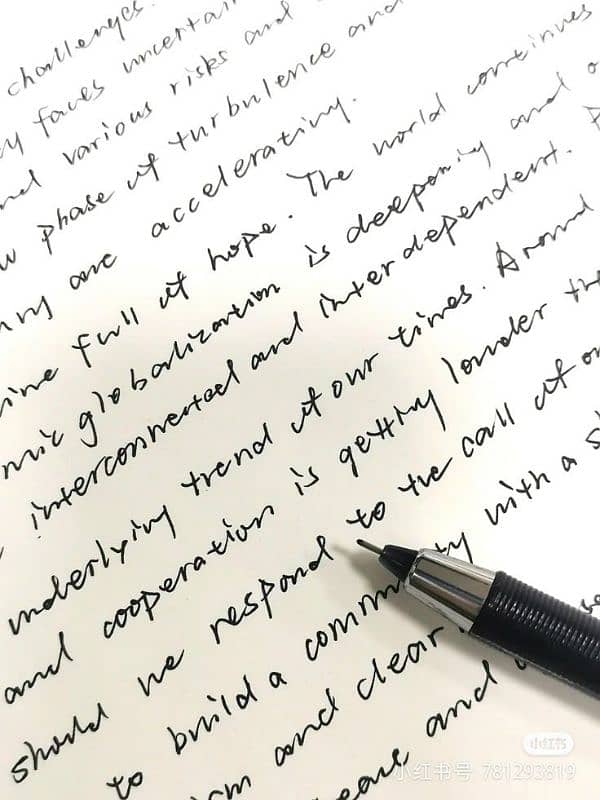 challenges.
faces uncertain
various risks and
phase of turbulence and
are accelerating.
full of hope. The world continues
globalization is deepening and
interconnected and interdependent.
underlying trend of our times. Around
and cooperation is getting louder
should we respond to the call of
to build a with a
and clear
and
小红书
小红书号 781293819